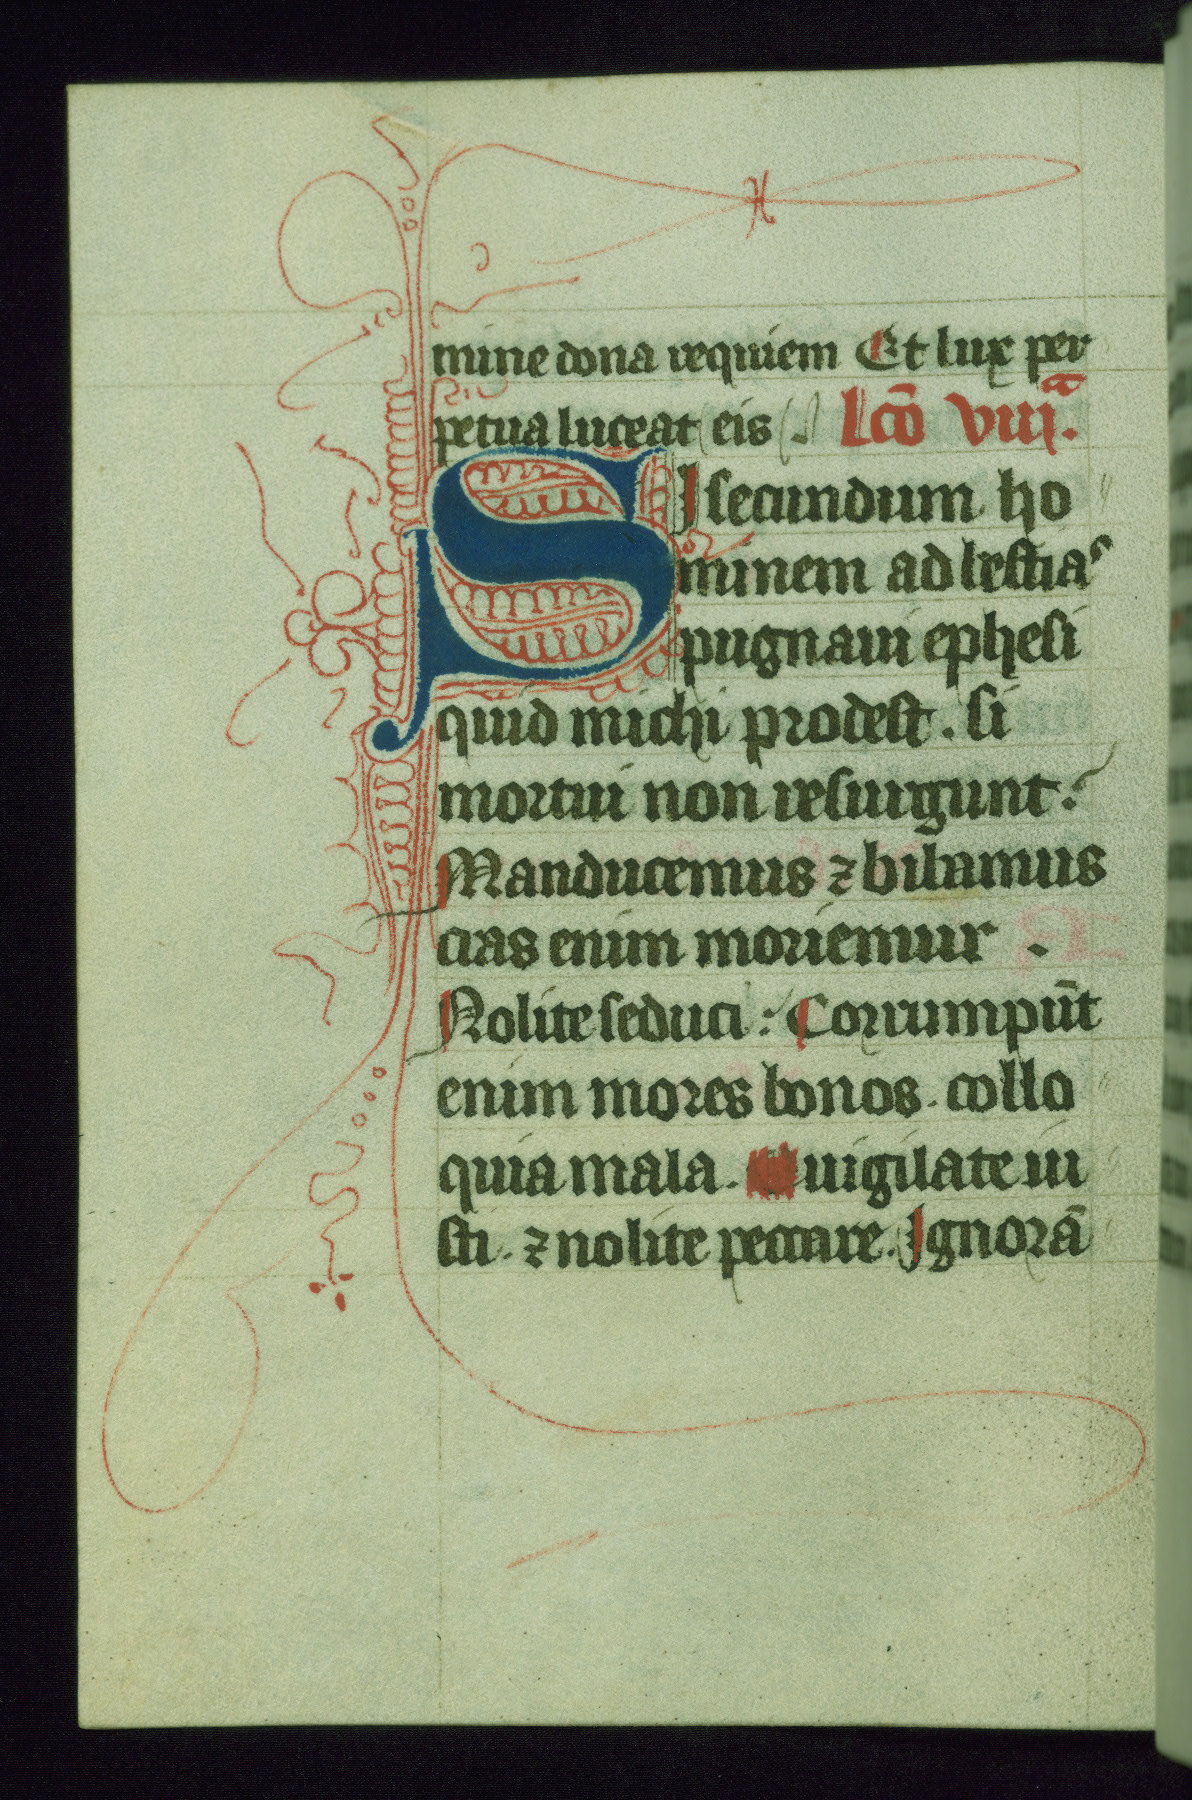 mine dona requiem Et lux per
petua luceat eis . Lcō viiiᵃ.
SI secundum ho
minem ad bestias
pugnaui ephesi
quid michi prodest . si
mortui non resurgunt .
Manducemus ⁊ bibamus
cras enim moriemur .
Nolite seduci : Corrumpūt
enim mores bonos . collo
quia mala . Euigilate iu
sti . ⁊ nolite peccare . Ignorā